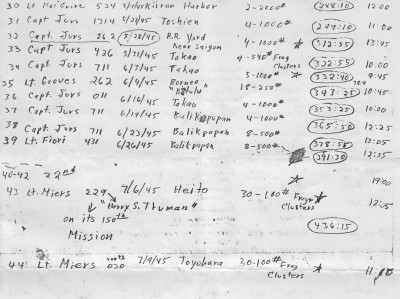 30 Lt. McGuire 529 Kiirun Harbor 2-2000# 288:10 12:00
31 Capt Jurs 1214 5/28/45 Toshien 4-1000# 299:10 11:00
32 Capt. Jurs 262 5/29/45 R.R. Yard near Saigon 4-1000# * 312:55 13:45
33 Capt Jurs 426 5/31/45 Takao 4-540# Frag Clusters 10:00
34 Capt Jurs 711 6/3/45 Takao 5-1000# * 332:40
35 Lt. Groves 262 6/4/45 Borneo "Balulu" 18-250# * 343:25 10:45
36 Capt. Jurs 011 6/16/45 Takao 4-1000# 353:25 10:00
37 Capt. Jurs 711 6/19/45 Balikpapan 4-1000#
38 Capt. Jurs 711 6/23/45 Balikpapan 8-500# 365:50 12:25
39 Lt. Fiori 431 6/26/45 Balikpapan 8-500# 378:55 13:05
391:30 12:35
40-42 22nd
19:00
43 Lt. Miers 229 7/6/45 Heito 30-100# Frag Clusters * 12:05
"Harry S. Truman"
on its 150th
Mission
436:15
44 Lt. Miers 020 7/9/45 Toyohara 30-100# Frag Clusters *